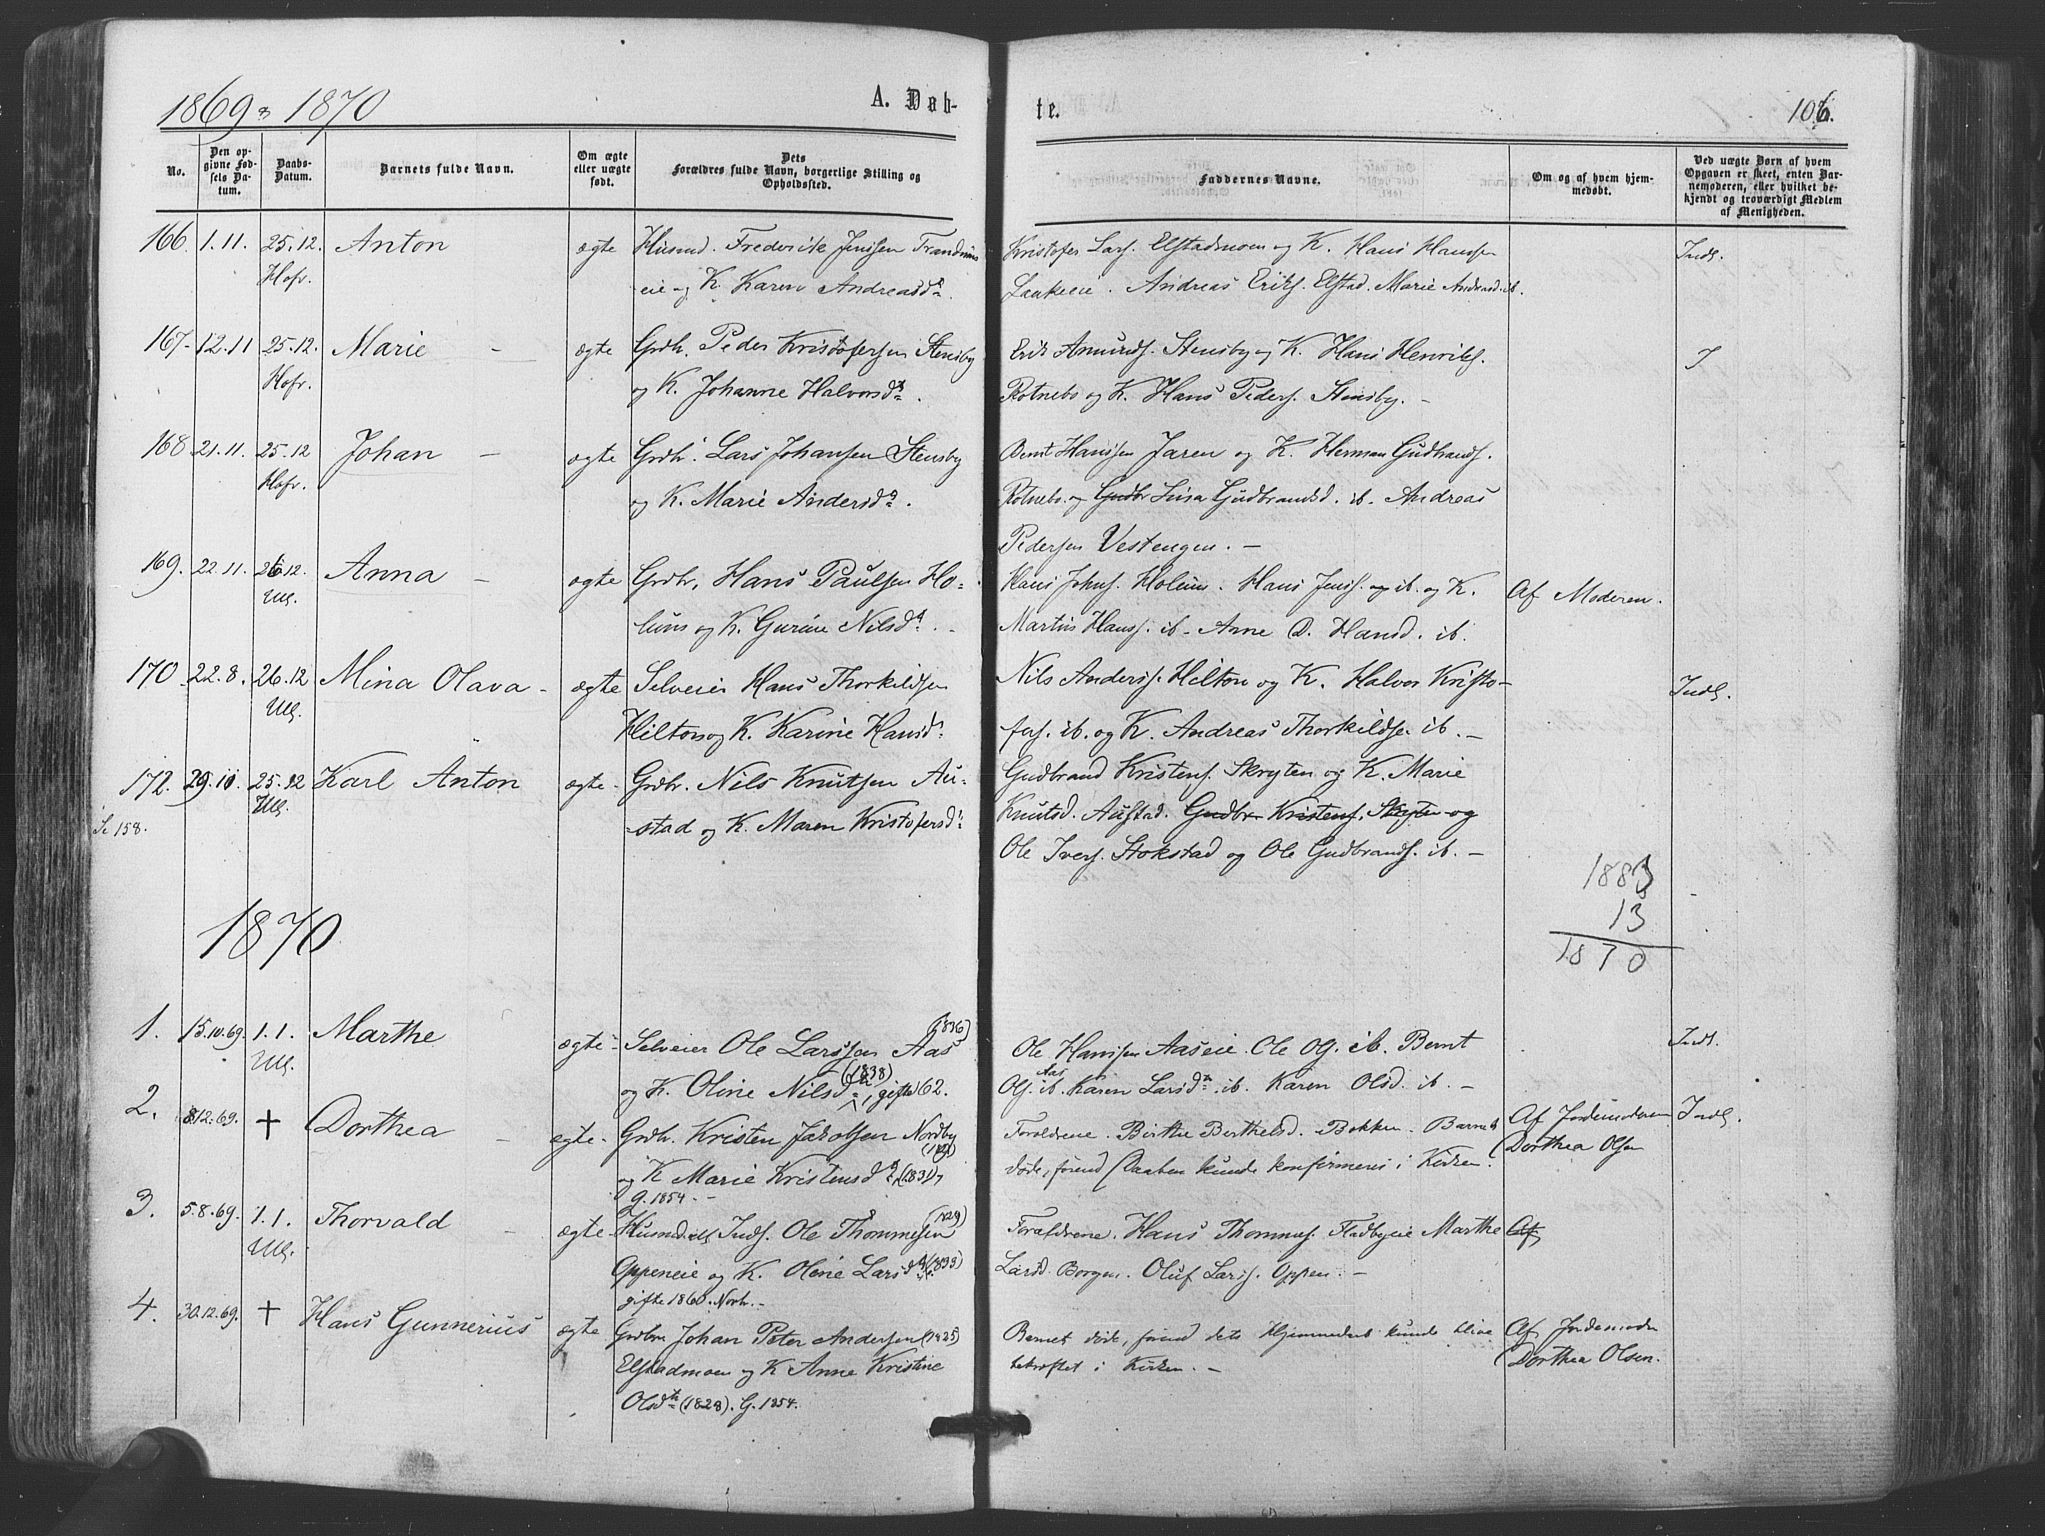 1869 & 1870
A. Døb-
te.
106.
No.
Den op-
givne Fød-
sels Da-
tum.
Daabs-
Datum.
Barnets fulde Navn.
Om ægte
eller uægte
født.
Dets
Forældres fulde Navn, borgerlige Stilling og
Opholdssted.
Faddernes Navne.
Om og af hvem hjem-
medøbt.
Ved uægte Børn af hvem
Opgaven er skeet, enten Bar-
nemoderen, eller hvilket be-
kjendt og troværdigt Medlem
af Menigheden.
166. 1.11. 25.12. Anton ægte Husmd. Frederik Jenssen
Hofr. eie og K. Karen Andreasd.
Kristofer Lars. Elstadmoen og K. Hans Hanssen
Andreas Eriks. Elstad. Marie Andreasd. ib.
Indl.
167. 12.11 25.12. Marie - ægte Grdbr. Peder Kristofersen Stensby
Hofr. og K. Johanne Halvorsd.
Erik Amunds. Stensby og K. Hans Henriks.
Rotnebo og K. Hans Peders. Stensby. -
I
168 21.11. 25.12 Johan - ægte Grdbr. Lars Johansen Stensby
Hofr. og K. Marie Andersd.
Bernt Hanssen Jaren og K. Herman Gudbrands.
Rotnebo og Gudbr Gudbrandsd. ib. Andreas
Pedersen Vestengen. -
169. 22.11. 26.12. Anna - ægte Grdbr. Hans Paulsen Ho-
Ull. lum og K. Gurine Nilsd. -
Hans Johns. Holum. Hans Jenss. og ib. og K.
Martin Hanss. ib. Anne D. Hansd. ib.
Af Moderen.
170 22.8. 26.12 Mina Olava - ægte Selveier Hans Thorkildsen
Ull. Hilton og K. Karine Hansd.
Nils Anderss. Hilton og K. Halvor Kristo-
fers. ib. og K. Andreas Thorkilds. ib. -
Indl.
172. 29.10. 25.12 Karl Anton ægte Grdbr. Nils Knutsen Au-
Se 158. Ull. -stad og K. Maren Kristofersd.
Gudbrand Kristens. Skryten og K. Marie
Knutsd. Austad. Gudbr Kristens. Skryten og
Ole Ivers. Stokstad og Ole Gudbrands. ib. -
1883
13
1870
1870
1. 15.10.69. 1.1. Marthe ægte - Selveier Ole Larssen Aas (1836)
Ull. og K. Oline Nilsd. (1838) gifte 62.
Ole Hanssen Aaseie. Ole Ol. ib. Bernt
Ol. ib. Aas Karen Larsd. ib. Karen Olsd. ib. -
Indl.
2. 8.12.69. † Dorthea - ægte - Grdbr. Kristen Jakobsen Nordby
og K Marie Kristensd. (1831)
G. 1854. -
Foreldrene. Birthe Berthelsd. Bakken. Barnet
døde, førend Daaben kunde konfirmeres i Kirken.
Af Jordemoderen
(Dorthea Olsen
Indl.
3. 5.8.69. 1.1. Thorvald - ægte - Husmd. Inds. Ole Thommesen (1829)
Ull. Oppeneie og K. Oline Larsd. (1833)
gifte 1860. -
Forældrene. Hans Thommes. Fladbyeie Marthe
Larsd. Borgen. Oluf Larss. Oppen. -
Af
4. 30.12.69. † Hans Gunnerius ægte Grdbr. Johan Peter Andersen (1825)
Elstadmoen og K Anne Kristine
Olsd. (1828). G. 1854.
Barnet døde, førend dets Hjemmedaab kunde blive
bekræftet i Kirken. -
Af Jordemoder
(Dorthea Olsen.